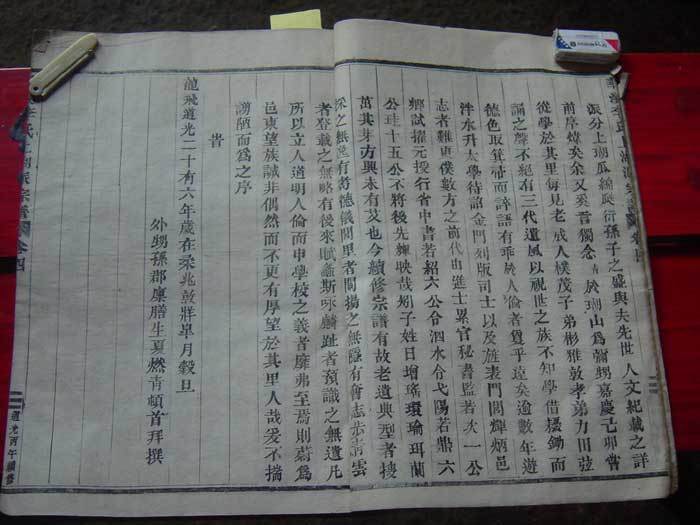 派分上湖瓜綿瓞衍孫子之盛與夫先世人文紀載之詳
前序煒矣余又奚言獨念 於湖山為彌甥嘉慶己卯嘗
從學於其里每見老成人樸茂子弟彬雅敦孝弟力田弦
誦之聲不絕有三代遺風以視世之族不知學借耰鋤而
德色取箕帚而誶語有乖於人倫者夐乎遠矣逾數年遊
泮水升太學待詔金門列版司士以及旌表門閭輝炳邑
志者難更僕數方之前代由進士累官秘書監若次一公
鄉試擢元授行省中書若紹六公令泗水令弋陽若鼎六
公珪十五公不將後先輝映哉矧子姓日增瑤環瑜珥蘭
茁其芽方興未有艾也今續修宗譜有故老遺典型者搜
采之無遺有壽德儀閭里者闡揚之無隱有會志步青雲
者登載之無略有後來賦螽斯咏麟趾者預識之無遺凡
所以立人道明人倫而申學校之義者靡弗至焉則蔚為
邑東望族誠非偶然而不更有厚望於其里人哉爰不揣
謭陋而為之序
旹
龍飛道光二十有六年歲在柔兆敦牂皋月穀旦
外甥孫郡廩膳生夏燃青頓首拜撰
李氏上湖派宗譜 卷四
道光丙午續修